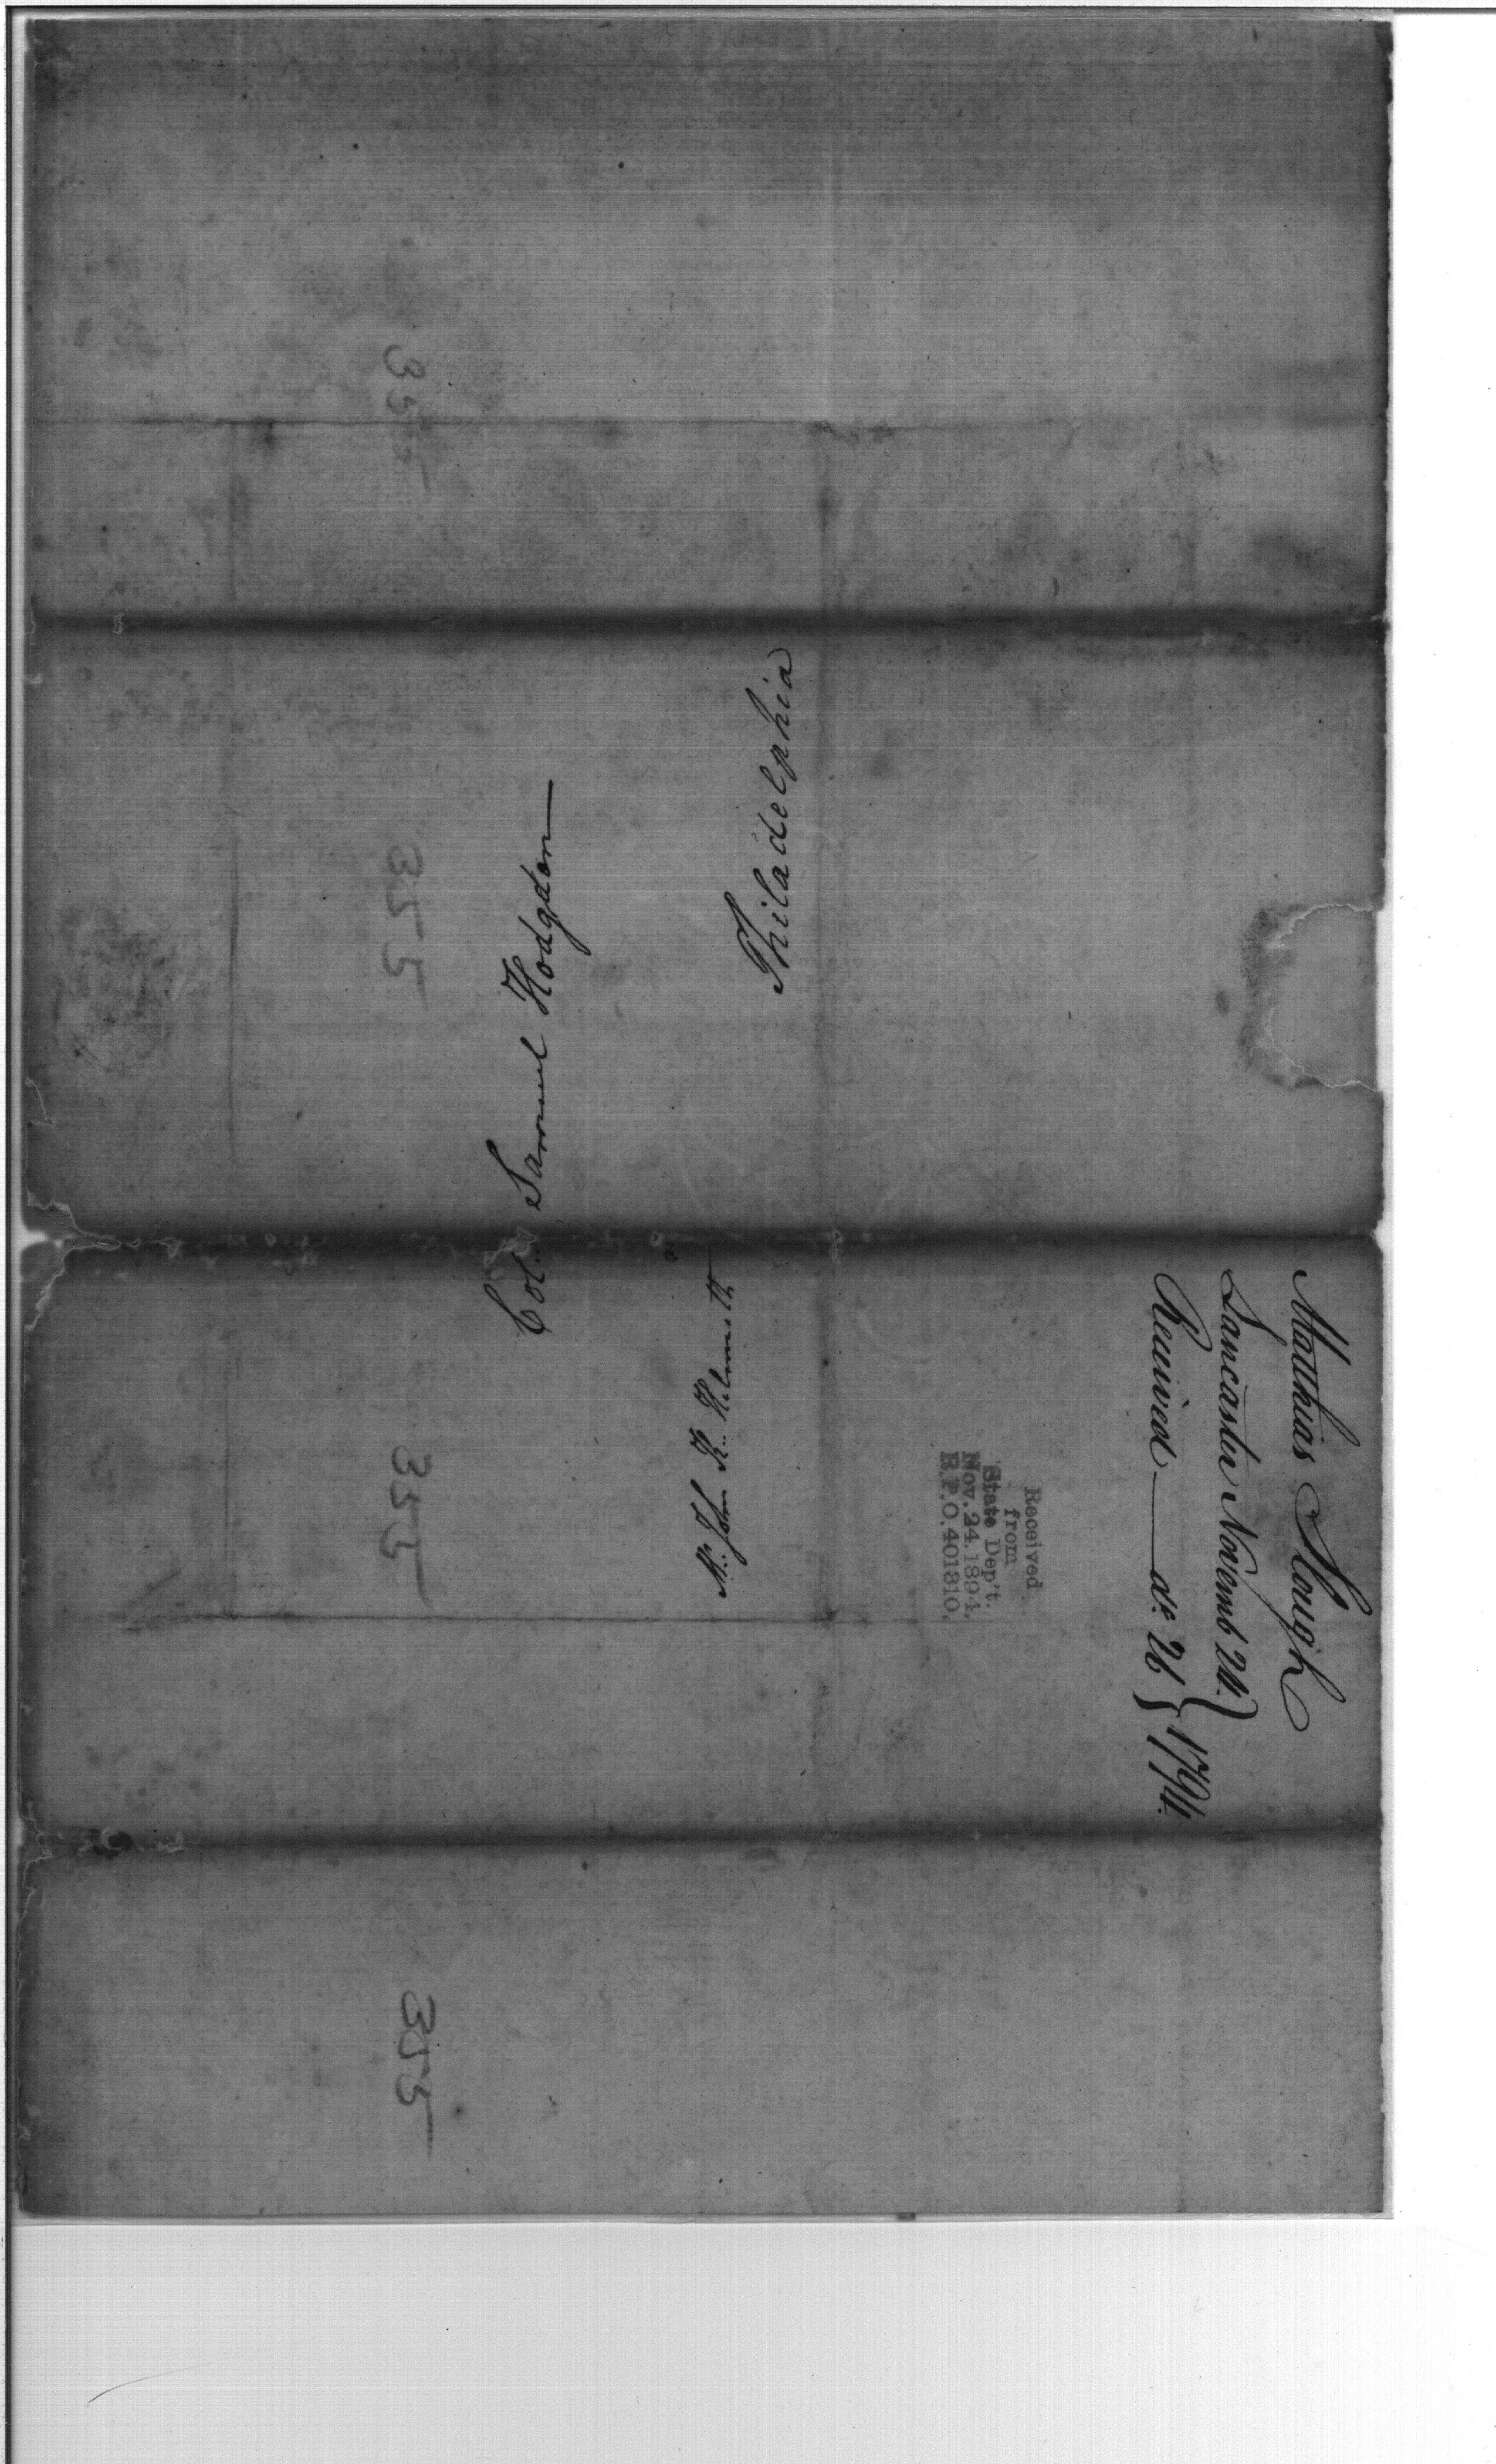 Col: Samuel Hodgdon
Philadelphia
Mr. John K. Helmuth
Matthias Slough
Lancaster Novemb 24. } 1794.
Received — do. 26 }
Received
from
State Dep't.
Nov. 24. 1894.
R. P. O. 401310.
355
355
355
355